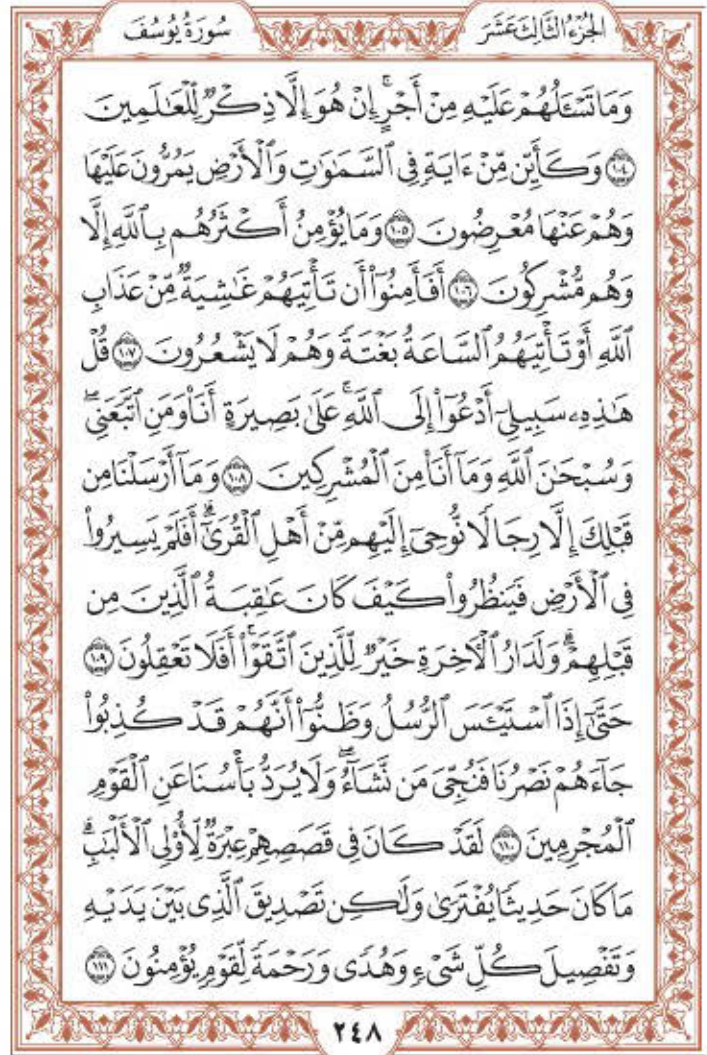 الجُزْءُ الثَّالِثَ عَشَرَ
سُورَةُ يُوسُفَ
وَمَا تَسْـَٔلُهُمْ عَلَيْهِ مِنْ أَجْرٍۚ إِنْ هُوَ إِلَّا ذِكْرٌ لِّلْعَـٰلَمِينَ
١٠٤ وَكَأَيِّن مِّنْ ءَايَةٍ فِى ٱلسَّمَـٰوَٰتِ وَٱلْأَرْضِ يَمُرُّونَ عَلَيْهَا
وَهُمْ عَنْهَا مُعْرِضُونَ ١٠٥ وَمَا يُؤْمِنُ أَكْثَرُهُم بِٱللَّهِ إِلَّا
وَهُم مُّشْرِكُونَ ١٠٦ أَفَأَمِنُوٓا۟ أَن تَأْتِيَهُمْ غَـٰشِيَةٌ مِّنْ عَذَابِ
ٱللَّهِ أَوْ تَأْتِيَهُمُ ٱلسَّاعَةُ بَغْتَةً وَهُمْ لَا يَشْعُرُونَ ١٠٧ قُلْ
هَـٰذِهِۦ سَبِيلِىٓ أَدْعُوٓا۟ إِلَى ٱللَّهِۚ عَلَىٰ بَصِيرَةٍ أَنَا۠ وَمَنِ ٱتَّبَعَنِىۖ
وَسُبْحَـٰنَ ٱللَّهِ وَمَآ أَنَا۠ مِنَ ٱلْمُشْرِكِينَ ١٠٨ وَمَآ أَرْسَلْنَا مِن
قَبْلِكَ إِلَّا رِجَالًا نُّوحِىٓ إِلَيْهِم مِّنْ أَهْلِ ٱلْقُرَىٰٓۗ أَفَلَمْ يَسِيرُوا۟
فِى ٱلْأَرْضِ فَيَنظُرُوا۟ كَيْفَ كَانَ عَـٰقِبَةُ ٱلَّذِينَ مِن
قَبْلِهِمْۗ وَلَدَارُ ٱلْـَٔاخِرَةِ خَيْرٌ لِّلَّذِينَ ٱتَّقَوْا۟ۚ أَفَلَا تَعْقِلُونَ ١٠٩
حَتَّىٰٓ إِذَا ٱسْتَيْـَٔسَ ٱلرُّسُلُ وَظَنُّوٓا۟ أَنَّهُمْ قَدْ كُذِبُوا۟
جَآءَهُمْ نَصْرُنَا فَنُجِّىَ مَن نَّشَآءُۖ وَلَا يُرَدُّ بَأْسُنَا عَنِ ٱلْقَوْمِ
ٱلْمُجْرِمِينَ ١١٠ لَقَدْ كَانَ فِى قَصَصِهِمْ عِبْرَةٌ لِّأُو۟لِى ٱلْأَلْبَـٰبِۗ
مَا كَانَ حَدِيثًا يُفْتَرَىٰ وَلَـٰكِن تَصْدِيقَ ٱلَّذِى بَيْنَ يَدَيْهِ
وَتَفْصِيلَ كُلِّ شَىْءٍ وَهُدًى وَرَحْمَةً لِّقَوْمٍ يُؤْمِنُونَ ١١١
٢٤٨